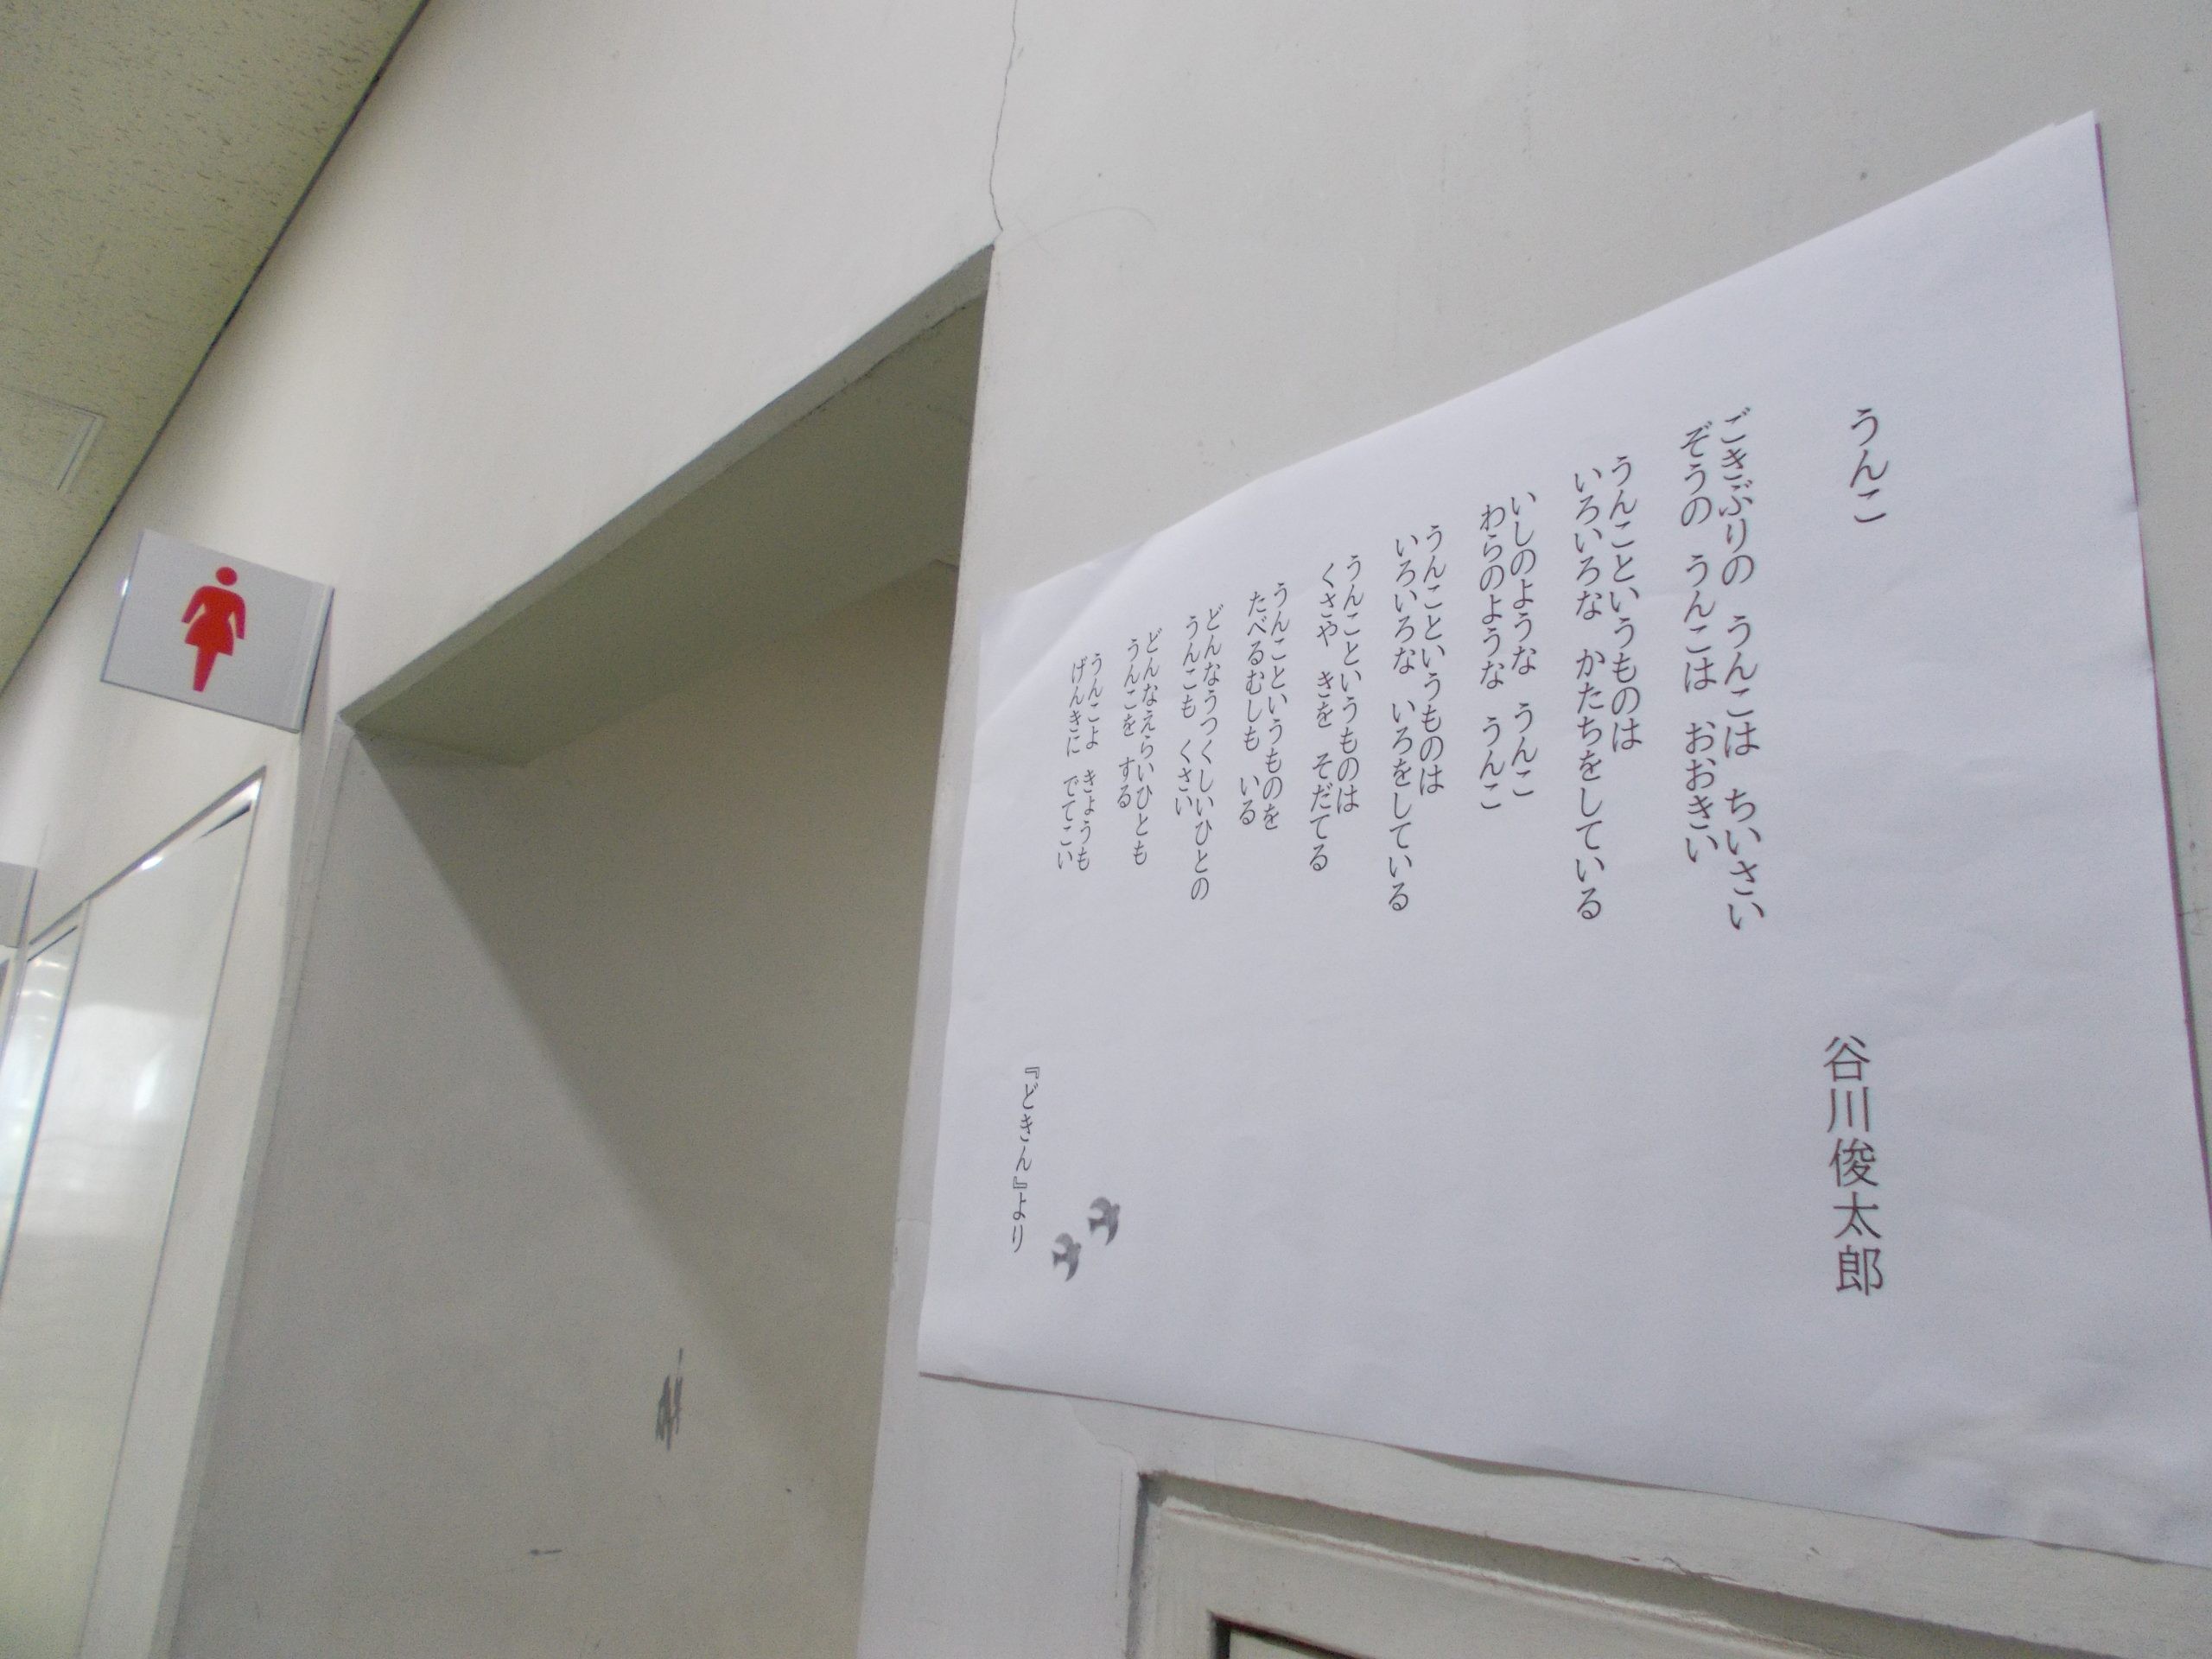 うんこ
谷川俊太郎
ごきぶりの　うんこは　ちいさい
ぞうの　うんこは　おおきい
うんこというものは
いろいろな　かたちをしている
いしのような　うんこ
わらのような　うんこ
うんこというものは
いろいろな　いろをしている
うんこというものは
くさや　きを　そだてる
うんこというものを
たべるむしも　いる
どんなうつくしいひとの
うんこも　くさい
どんなえらいひとも
うんこを　する
うんこよ　きょうも
げんきに　でてこい
『どきん』より